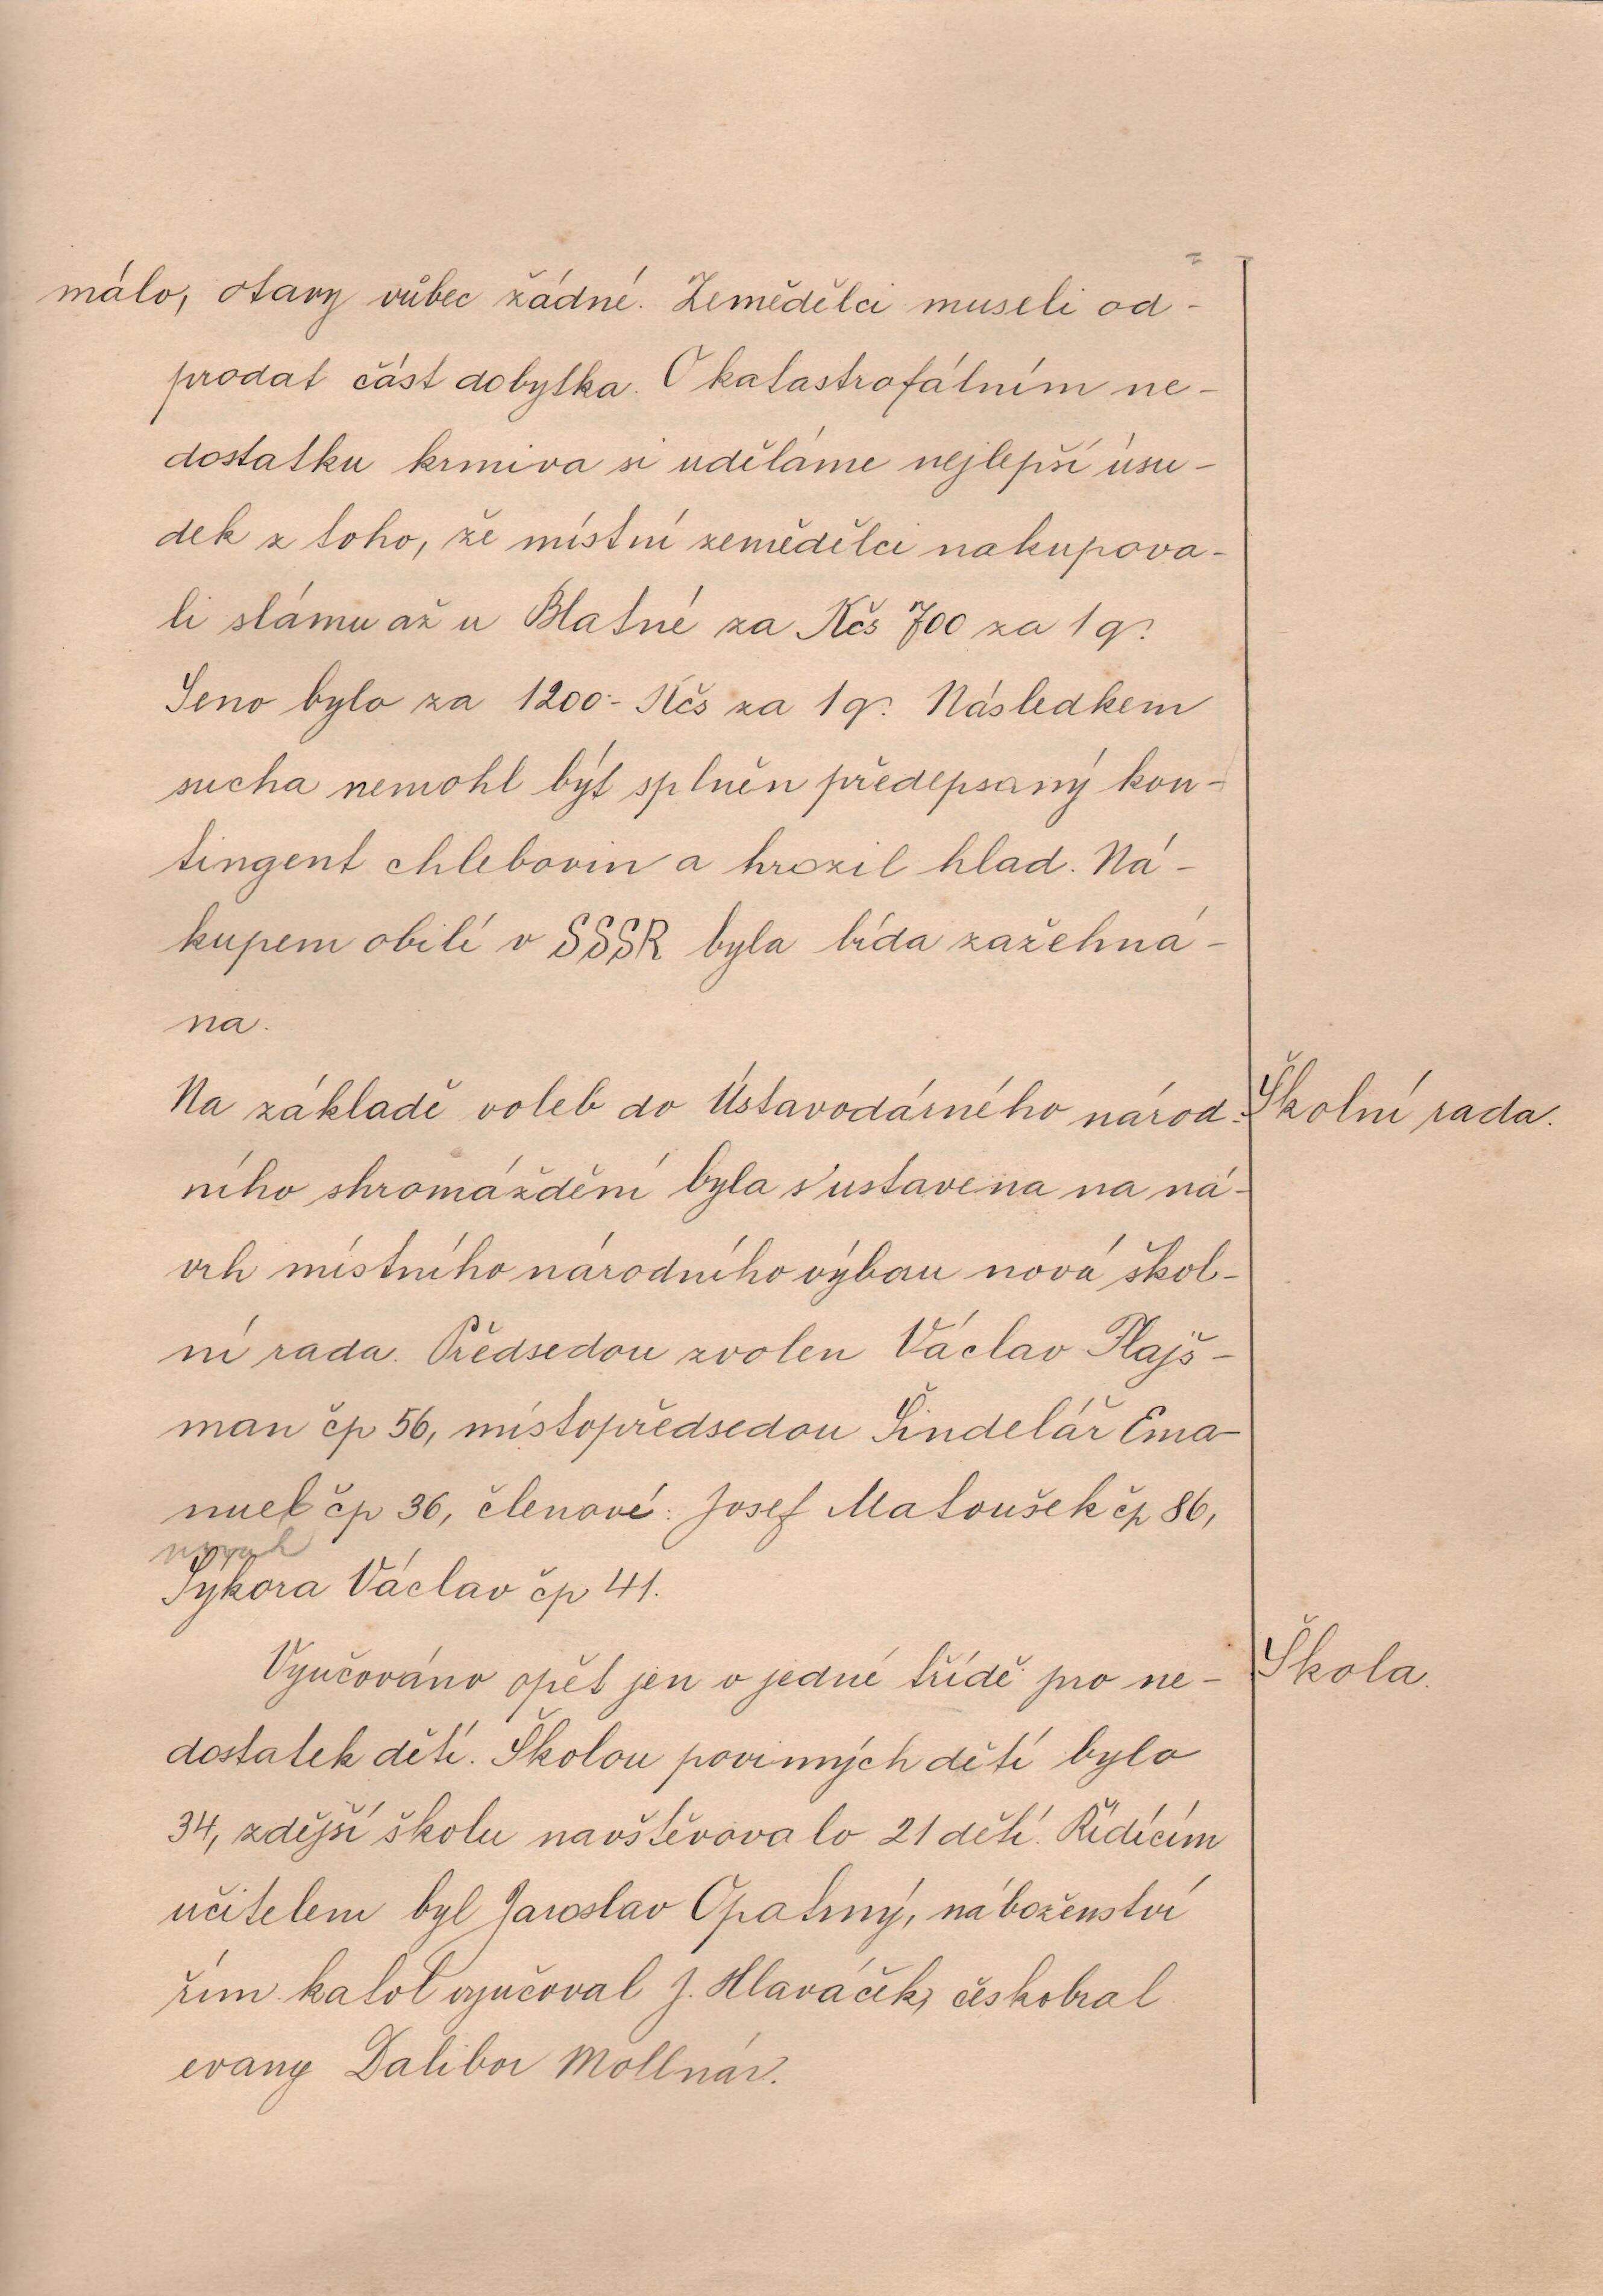 málo, otavy vůbec žádné. Zemědělci museli od-
prodat část dobytka. O katastrofálním ne-
dostatku krmiva si uděláme nejlepší úsu-
dek z toho, že místní zemědělci nakupova-
li slámu až u Blatné za Kčs 700 za 1 q.
Seno bylo za 1200.- Kčs za 1 q. Následkem
sucha nemohl být splněn předepsaný kon-
tingent chlebovin a hrozil hlad. Ná-
kupem obilí v SSSR byla bída zažehná-
na.
Na základě voleb do Ústavodárného národ-
Školní rada.
ního shromáždění byla sustavena na ná-
vrh místního národního výboru nová škol-
ní rada. Předsedou zvolen Václav Flajš-
man čp 56, místopředsedou Šindelář Ema-
nuel čp 36, členové: Josef Matoušek čp 86,
Sýkora Václav čp 41.
Vyučováno opět jen v jedné třídě pro ne-
Škola.
dostatek dětí. Školou povinných dětí bylo
34, zdější školu navštěvovalo 21 dětí. Řídícím
učitelem byl Jaroslav Opatrný, náboženství
řím. katol vyučoval J. Hlaváček, českobrat
evang Dalibor Mollnár.